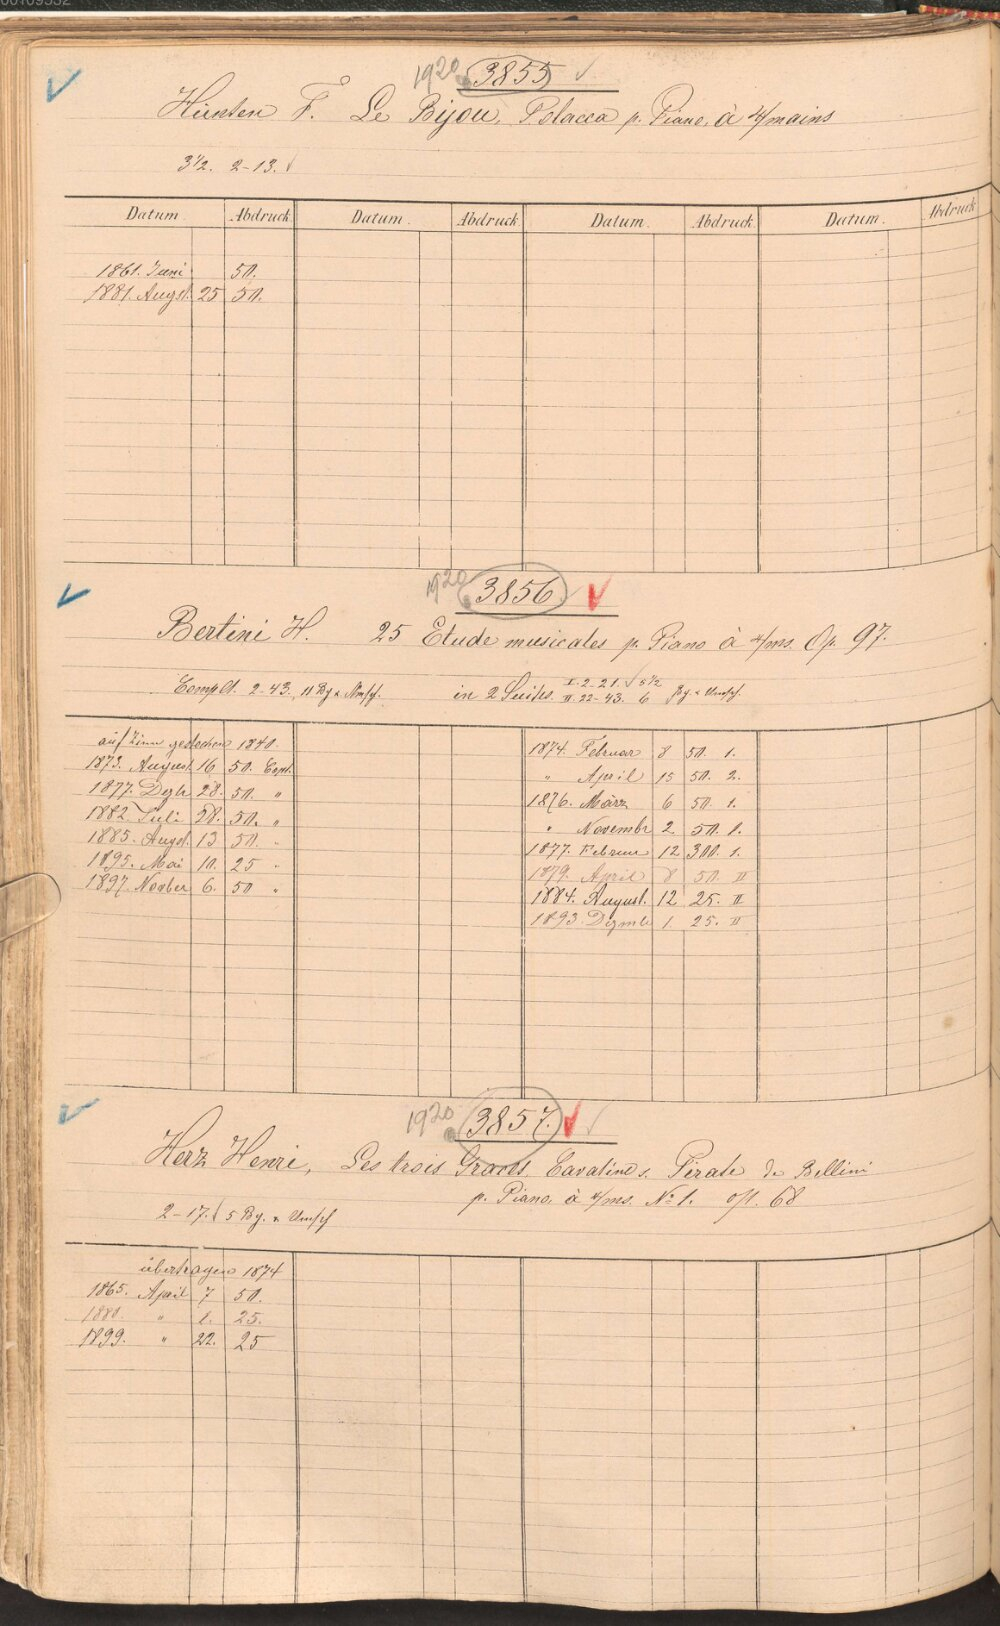 00109332
1920 3855
Hünten F. Le Bijou, Polacca p. Piano, à 4/mains
3 1/2. 2-13.
Datum Abdruck Datum. Abdruck Datum. Abdruck. Datum. Abdruck
1861. Juni 50.
1881. Augst. 25 50.
1920 3856
Bertini H. 25 Etude musicales p. Piano à 4/ms. Op. 97.
Complt. 2-43. 11 Bg. u. Umsch. in 2 Suites. I. 2-21. 5 1/2
II. 22-43. 6 Bg. u. Umsch.
auf Zinn gestochen 1840.
1873. August 16 50. Cpt.
1877. Dzbr 28. 50. "
1882. Juli 28. 50. "
1885. Augst. 13 50. "
1895. Mai 10. 25 "
1897. Novber 6. 50 "
1874. Februar 8 50. 1.
" April 15 50. 2.
1876. März 6 50. 1.
" Novembr 2. 50. 1.
1877. Februar 12 300. 1.
1879. April 8 50. II
1884. August. 12 25. II
1893. Dzmb 1. 25. II
1920 3857.
Herz Henri, Les trois Graces. Cavatine s. Pirate de Bellini
p. Piano, à 4/ms. No 1. op. 68
2-17. 5 Bg. u. Umsch
übertragen 1874
1865. April 7 50.
1880. " 1. 25.
1899. " 22. 25